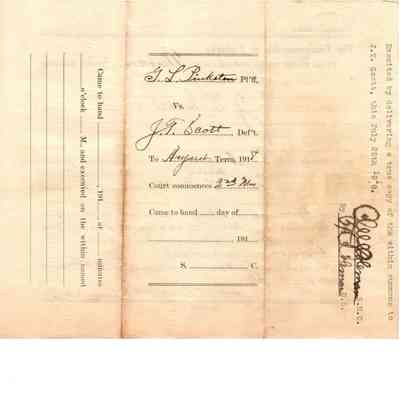 Came to hand ____, 191__ at ____ minutes
____ o'clock ____ M., and executed on the within named
T. L. Pinkston Pl'ff.
Vs.
J. T. Scott Def't.
To August Term, 1918
Court commences 2nd Mon
Came to hand ____ day of ____
____ 191__
S. C.
Executed by delivering a true copy of the within summons to
J.T. Scott, this July 25th 1918.
By